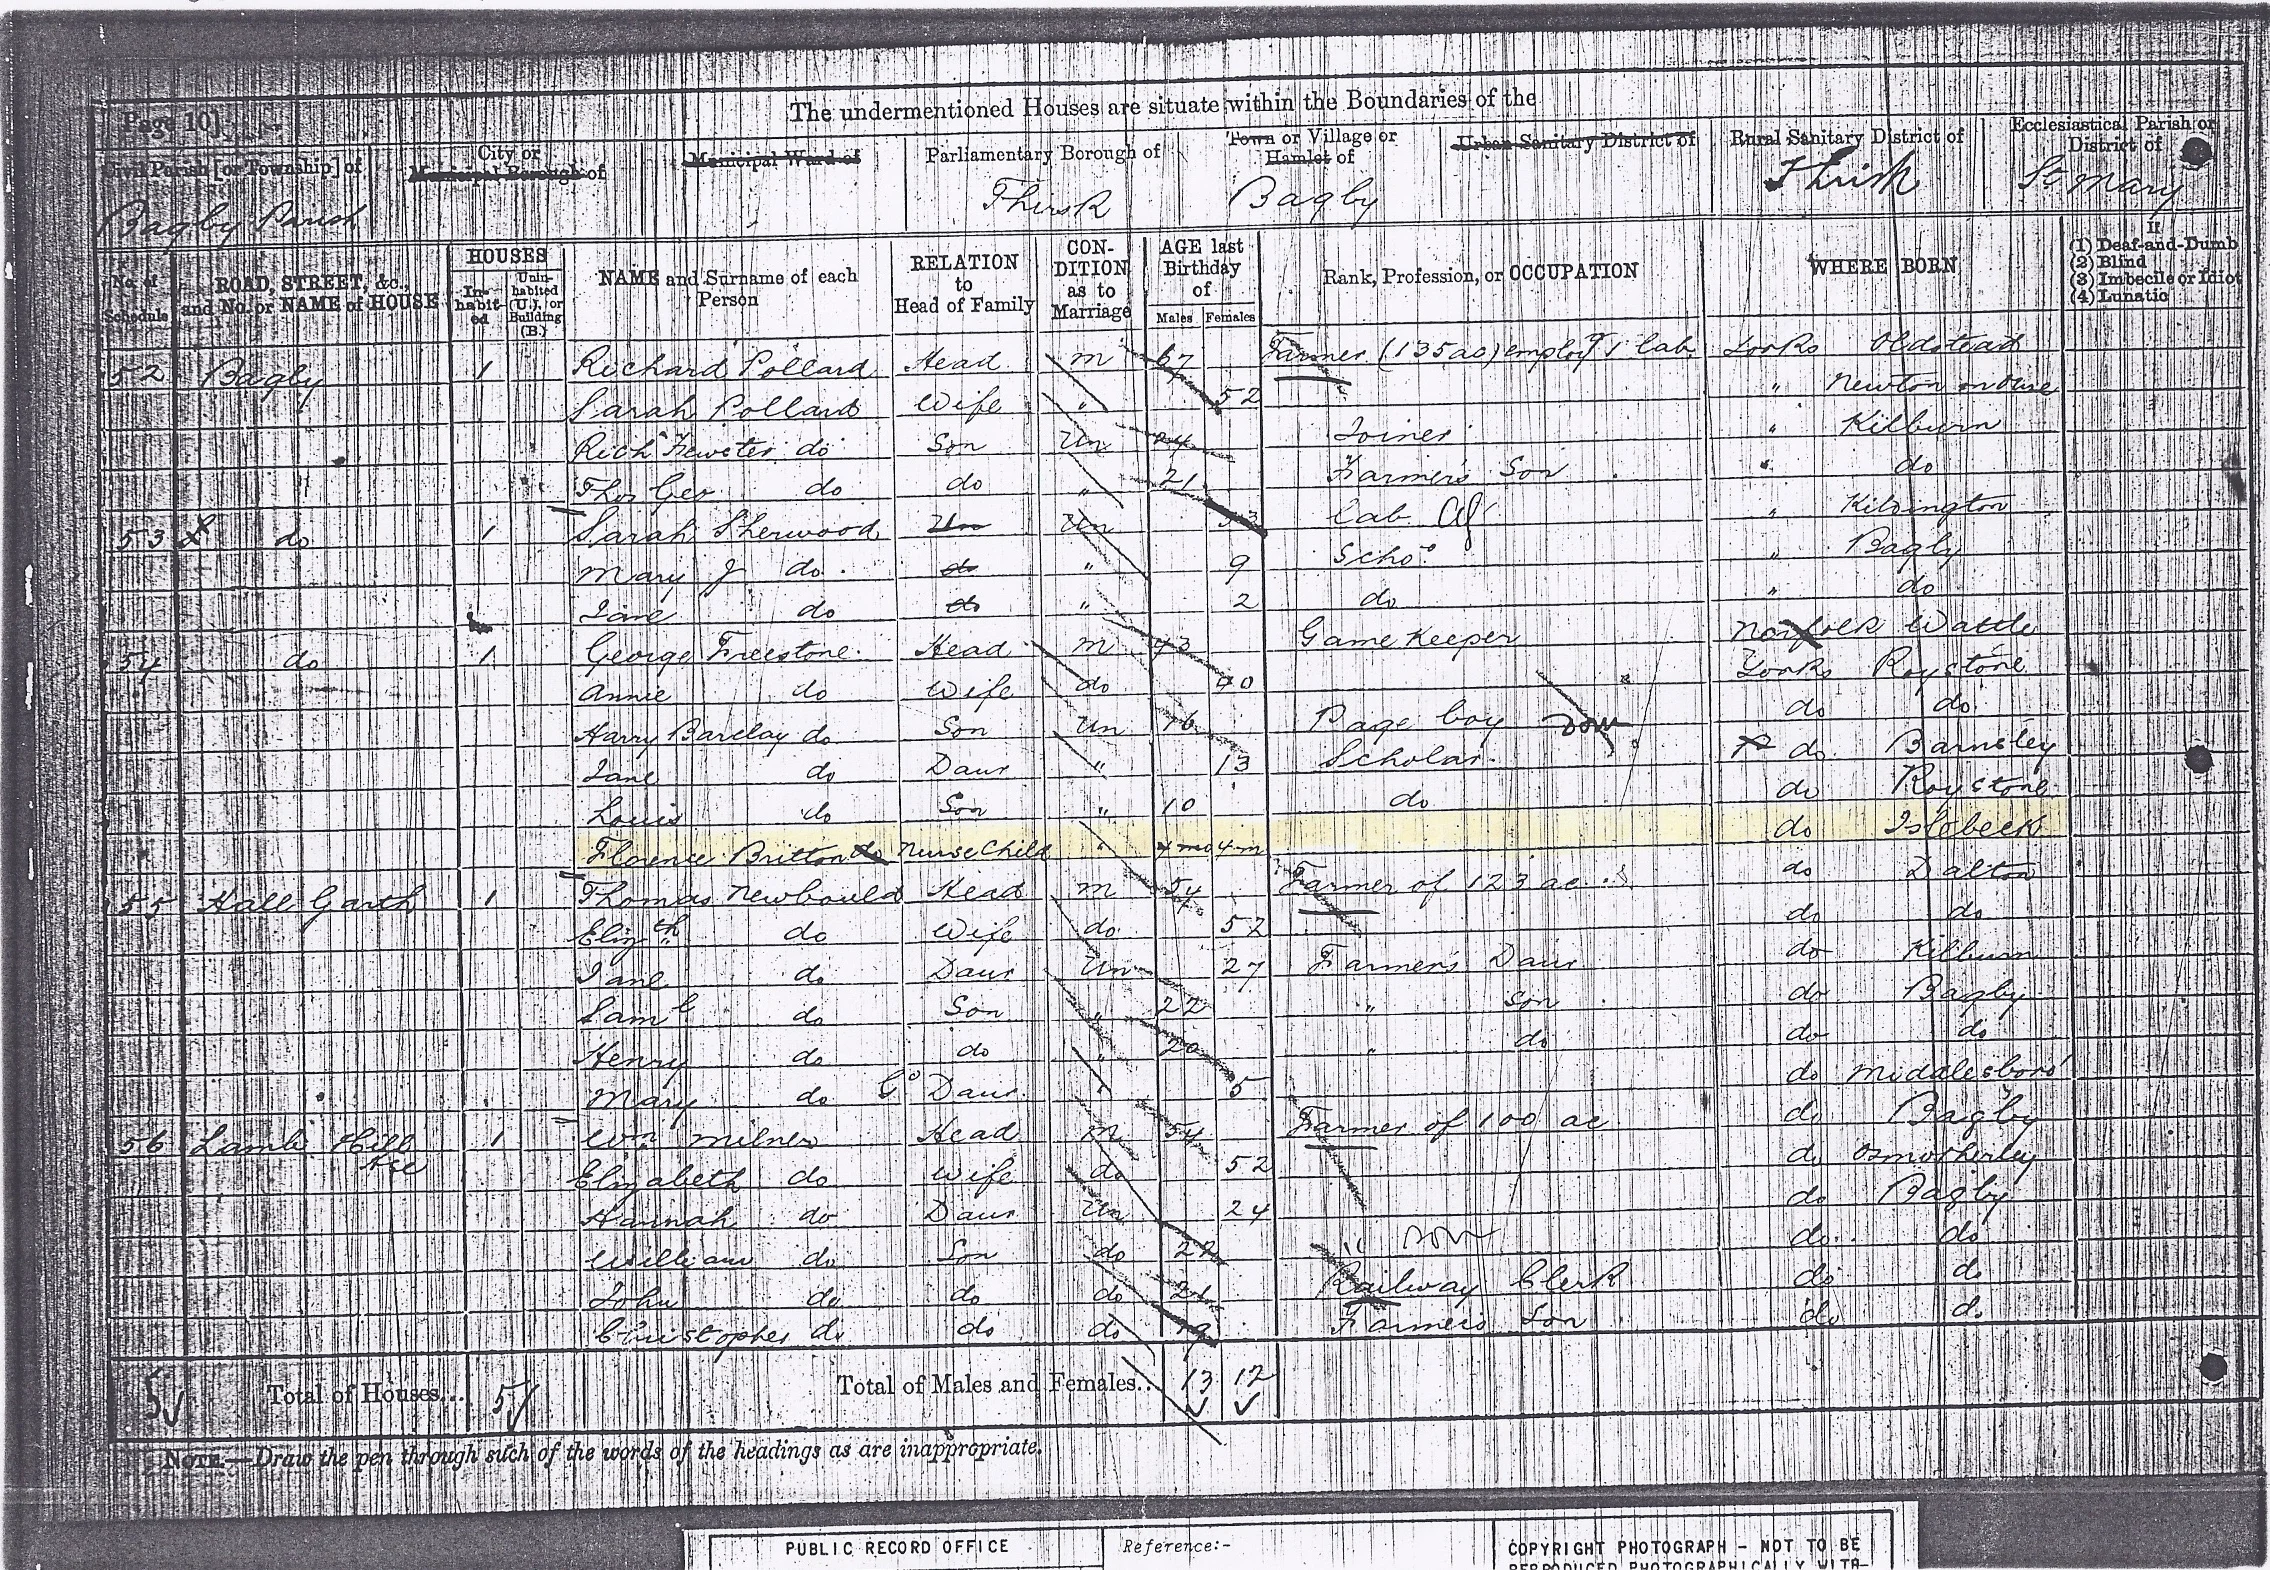 The undermentioned Houses are situate within the Boundaries of the
Page 10]
Civil Parish [or Township] of
City or Municipal Borough of
Municipal Ward of
Parliamentary Borough of
Town or Village or Hamlet of
Urban Sanitary District of
Rural Sanitary District of
Ecclesiastical Parish or District of
Bagby Parish Thirsk Bagby Thirsk St Mary
No. of Schedule
ROAD, STREET, &c., and No. or NAME of HOUSE
HOUSES
Inhabited
Uninhabited (U.), or Building (B.)
NAME and Surname of each Person
RELATION to Head of Family
CONDITION as to Marriage
AGE last Birthday of
Males Females
Rank, Profession, or OCCUPATION
WHERE BORN
If
(1) Deaf-and-Dumb
(2) Blind
(3) Imbecile or Idiot
(4) Lunatic
52 Bagby 1 Richard Pollard Head m 67 Farmer (135 ac) employg 1 lab Yorks Oldstead
Sarah Pollard Wife " 52 " Newton on Ouse
Richd Fewster do Son Un 24 Joiner " Kilburn
Thos Geo do do " 21 Farmers Son " do
53 do 1 Sarah Sherwood Un Un 33 Lab Ag " Kilvington
Mary J do do " 9 Scho " Bagby
Jane do do " 2 do " do
54 do 1 George Freestone Head m 43 Game Keeper Norfolk Wattle
Annie do Wife do 40 Yorks Roystone
Harry Barclay do Son Un 16 Page boy Dom do do
Jane do Daur " 13 Scholar do Barnsley
Louis do Son " 10 do do Roystone
Florence Britton do Nurse Child " 4 mo 4 m do Islebeck
55 Hall Garth 1 Thomas Newbould Head m 54 Farmer of 123 ac do Dalton
Elizth do Wife do 52 do do
Jane do Daur Un 27 Farmers Daur do Kilburn
Saml do Son " 22 " Son do Bagby
Henry do do " 20 " do do do
Mary do Gd Daur " 5 do Middlesboro'
56 Lamb Hill Hse 1 Wm Milner Head m 54 Farmer of 100 ac do Bagby
Elizabeth do Wife do 52 do Osmotherley
Hannah do Daur Un 24 do Bagby
William do Son do " son do do
John do do do Railway Clerk do do
Christopher do do do 19 Farmers Son do do
5 Total of Houses... 5 Total of Males and Females.. 13 12
NOTE.—Draw the pen through such of the words of the headings as are inappropriate.
PUBLIC RECORD OFFICE
Reference:-
COPYRIGHT PHOTOGRAPH - NOT TO BE
REPRODUCED PHOTOGRAPHICALLY WITH-